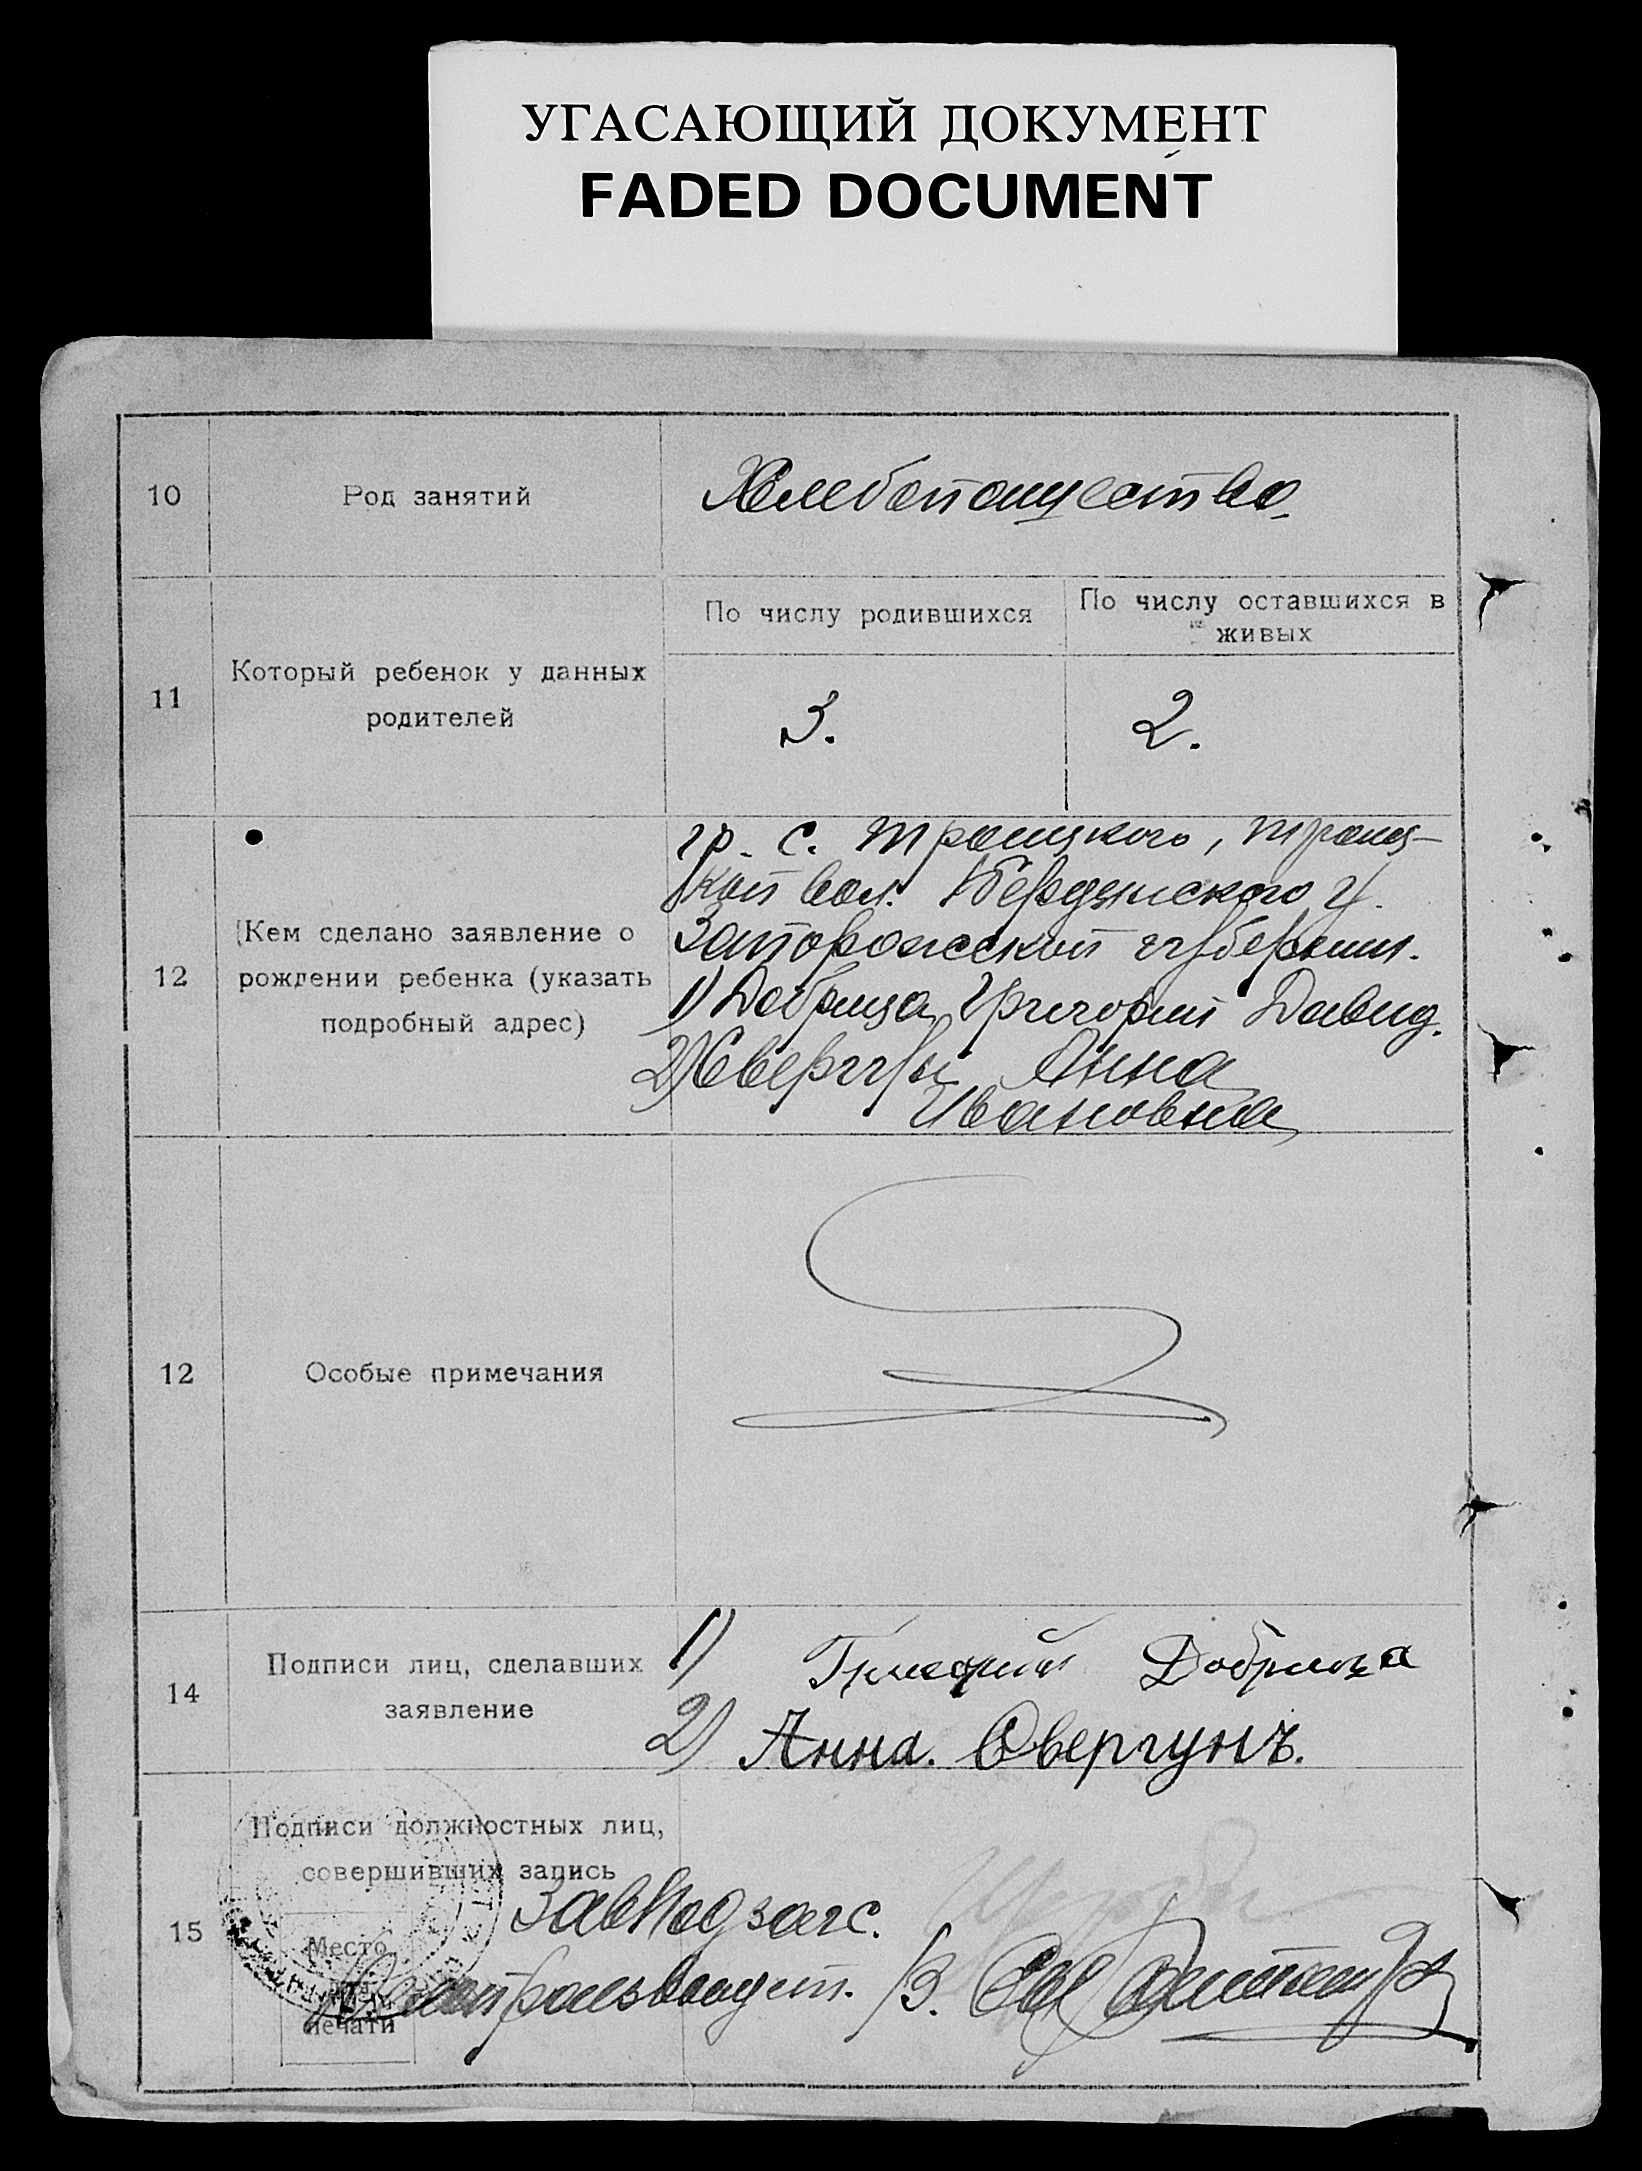 УГАСАЮЩИЙ ДОКУМЕНТ
FADED DOCUMENT
10
Род занятий
Хлебопашество.
11
Который ребенок у данных
родителей
По числу родившихся
По числу оставшихся в
живых
3.
2.
12
(Кем сделано заявление о
рождении ребенка (указать
подробный адрес)
гр. с. Троицкого, Троиц-
кой вол. Бердянского у.
Запорожской губернии.
1) Добрица Григорий Давид.
2) Овергун Анна
Ивановна
12
Особые примечания
14
Подписи лиц, сделавших
заявление
1) Григорий Добрица
2) Анна. Овергунъ.
15
Подписи должностных лиц,
совершивших запись
Завподзагс.
Место
печати